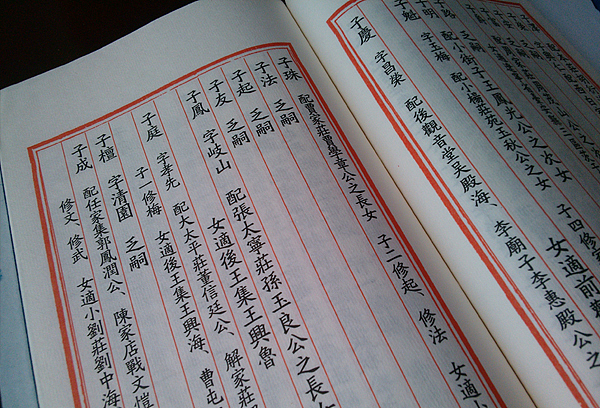 配小街子王鳳元公之次女
子魁 字五梅 配小楊莊苑玉秋公之女
子四修
女適前莊
子慶 字昌榮 配後觀音堂吳殿海、李廟子李惠殿公之
子珠 配賈家莊賈學章公之長女 子二修起、修法 女適小
子法 乏嗣
子起 乏嗣
子友 乏嗣
子鳳 字岐山 配張大寧莊孫玉良公之長女
女適後王集王興魯
子庭 字孝先 配大太平莊董信廷公、解家莊
子一修梅 女適後王集王興海、曹屯
子檀 字清園 乏嗣
子成 配任家集郭鳳潤公、陳家店戰文愷
修文 修武 女適小劉莊劉中海